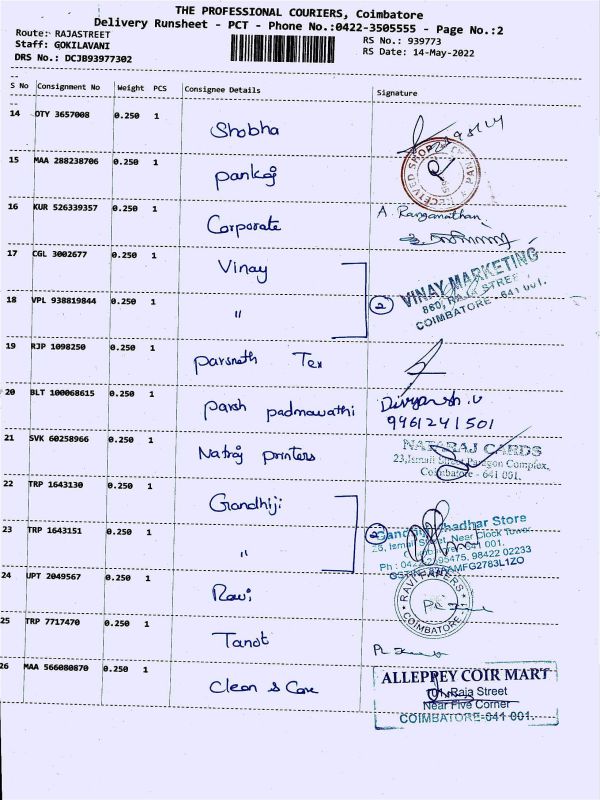 THE PROFESSIONAL COURIERS, Coimbatore
Delivery Runsheet - PCT - Phone No.:0422-3505555 - Page No.:2
Route: RAJASTREET
Staff: GOKILAVANI
DRS No.: DCJB93977302
RS No.: 939773
RS Date: 14-May-2022
S No Consignment No Weight PCS Consignee Details Signature
14 OTY 3657008 0.250 1 Shobha
15 MAA 288238706 0.250 1 Pankaj
RECEIVED SHOP
16 KUR 526339357 0.250 1 Corporate A. Ranganathan
17 CGL 3002677 0.250 1 Vinay
18 VPL 938819844 0.250 1 "
2 VINAY MARKETING
860, RAJA STREET
COIMBATORE - 641 001.
19 RJP 1098250 0.250 1 Parsneth Tex
20 BLT 100068615 0.250 1 Parsh padmawathi
Divyansh.v
9961241501
21 SVK 60258966 0.250 1 Natraj printers
NATARAJ CARDS
23, Ismail Street Paragon Complex,
Coimbatore - 641 001.
22 TRP 1643130 0.250 1 Gandhiji
23 TRP 1643151 0.250 1 "
2 Store
25, Ismail Street, Near Clock Tower
641 001.
98422 02233
24 UPT 2049567 0.250 1 Ravi
RAVI PAPERS
COIMBATORE
25 TRP 7717470 0.250 1 Tanot
26 MAA 566080870 0.250 1 Clean & Care
ALLEPPEY COIR MART
Raja Street
Near Five Corner
COIMBATORE-641 001.